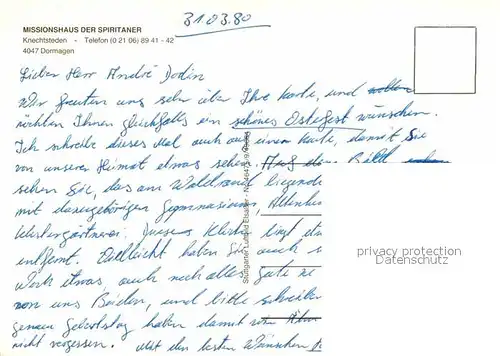 31.03.80
MISSIONSHAUS DER SPIRITANER
Knechtsteden - Telefon (0 21 06) 89 41 - 42
4047 Dormagen
Lieber Herr André Dodin
Wir freuten uns sehr über Ihre Karte, und wollen
möchten Ihnen gleichfalls ein schönes Osterfest wünschen.
Ich schreibe dieses mal auch auf einer Karte, damit Sie
von unserer Heimat etwas sehen. Auf dem Bild
sehen Sie, das am Waldrand liegende
mit dazugehörigen Gymnasium,
Klostergärtnerei. Dieses Kloster liegt
entfernt. Vielleicht haben Sie auch
Werk etwas, auch noch alles Gute
von uns Beiden, und bitte schreiben
genauen Geburtstag damit
nicht vergessen. Mit den besten Wünschen
Stuttgarter Luftbild Elsäßer
privacy protection
Datenschutz